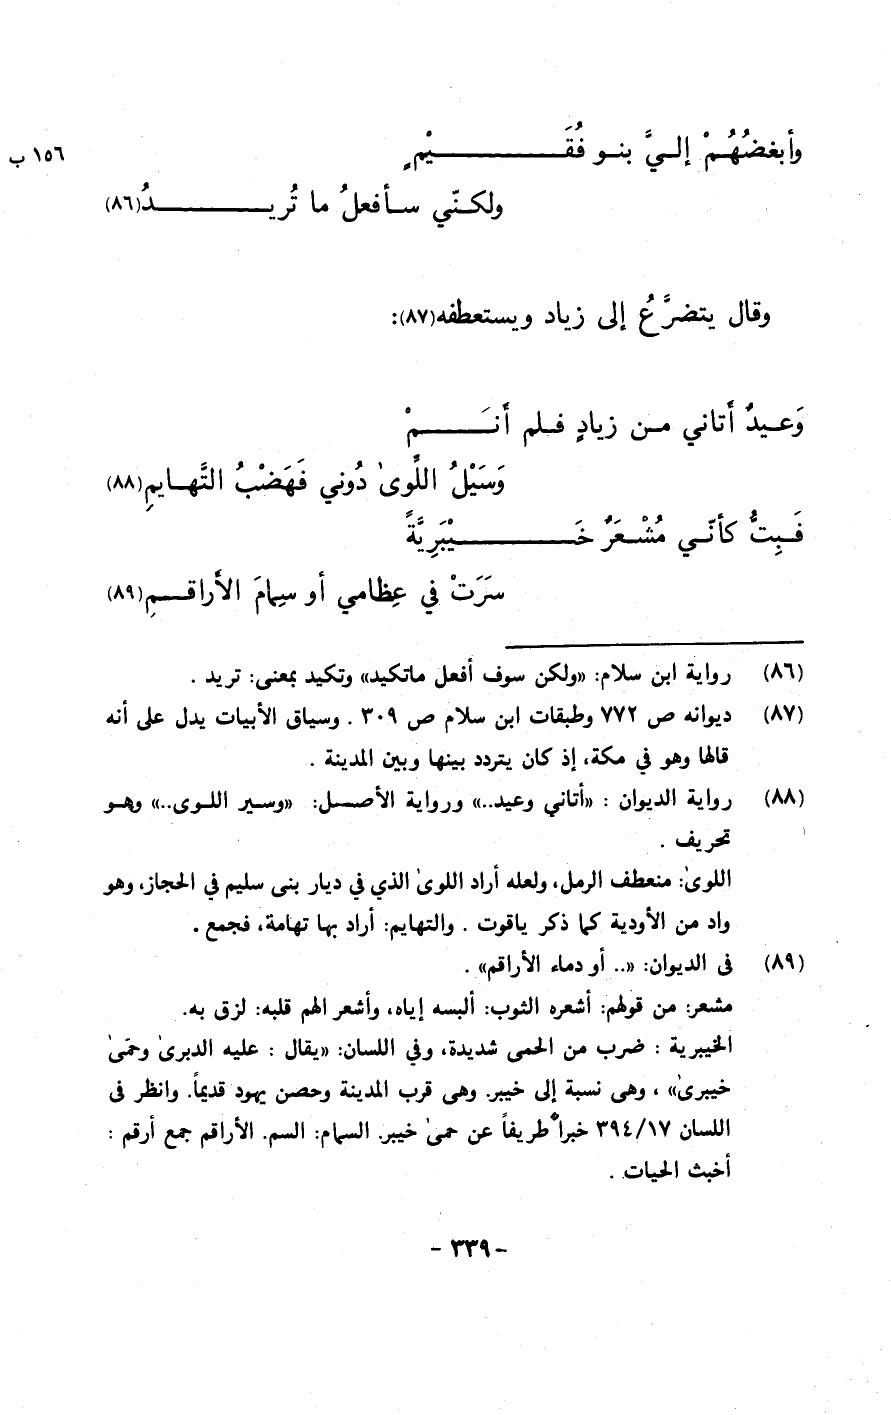 وأبغضُهُمْ إلـيَّ بنـو فُقَـــــيْمٍ
١٥٦ ب
ولكـنّي سـأفعلُ ما تُريــــدُ(٨٦)
وقال يتضرَّعُ إلى زياد ويستعطفه(٨٧):
وَعـيدٌ أتاني مـن زيادٍ فـلم أَنَــــمْ
وَسَيْلُ اللِّوىٰ دُوني فَهَضْبُ التَّهـايمِ(٨٨)
فَـبِتُّ كأنّـي مُشْـعَرٌ خَـــــيْبَرِيَّةً
سَرَتْ في عِظامي أو سِمامَ الأراقـــمِ(٨٩)
(٨٦) رواية ابن سلام: «ولكن سوف أفعل ماتكيد» وتكيد بمعنى: تريد .
(٨٧) ديوانه ص ٧٧٢ وطبقات ابن سلام ص ٣٠٩ . وسياق الأبيات يدل على أنه
قالها وهو في مكة، إذ كان يتردد بينها وبين المدينة .
(٨٨) رواية الديوان : «أتاني وعيد..» ورواية الأصــل: «وسـير اللـوى..» وهـو
تحريف .
اللوىٰ: منعطف الرمل، ولعله أراد اللوىٰ الذي في ديار بنى سليم في الحجاز، وهو
واد من الأودية كما ذكر ياقوت . والتهايم: أراد بها تهامة، فجمع .
(٨٩) فى الديوان: «.. أو دماء الأراقم» .
مشعر: من قولهم: أشعره الثوب: ألبسه إياه، وأشعر الهم قلبه: لزق به.
الخيبرية : ضرب من الحمى شديدة، وفي اللسان: «يقال : عليه الدبرىٰ وحمّىٰ
خيبرىٰ» ، وهى نسبة إلى خيبر. وهى قرب المدينة وحصن يهود قديماً. وانظر فى
اللسان ٣٩٤/١٧ خبراً طريفاً عن حمىٰ خيبر. السمام: السم. الأراقم جمع أرقم :
أخبث الحيات .
- ٣٣٩ -